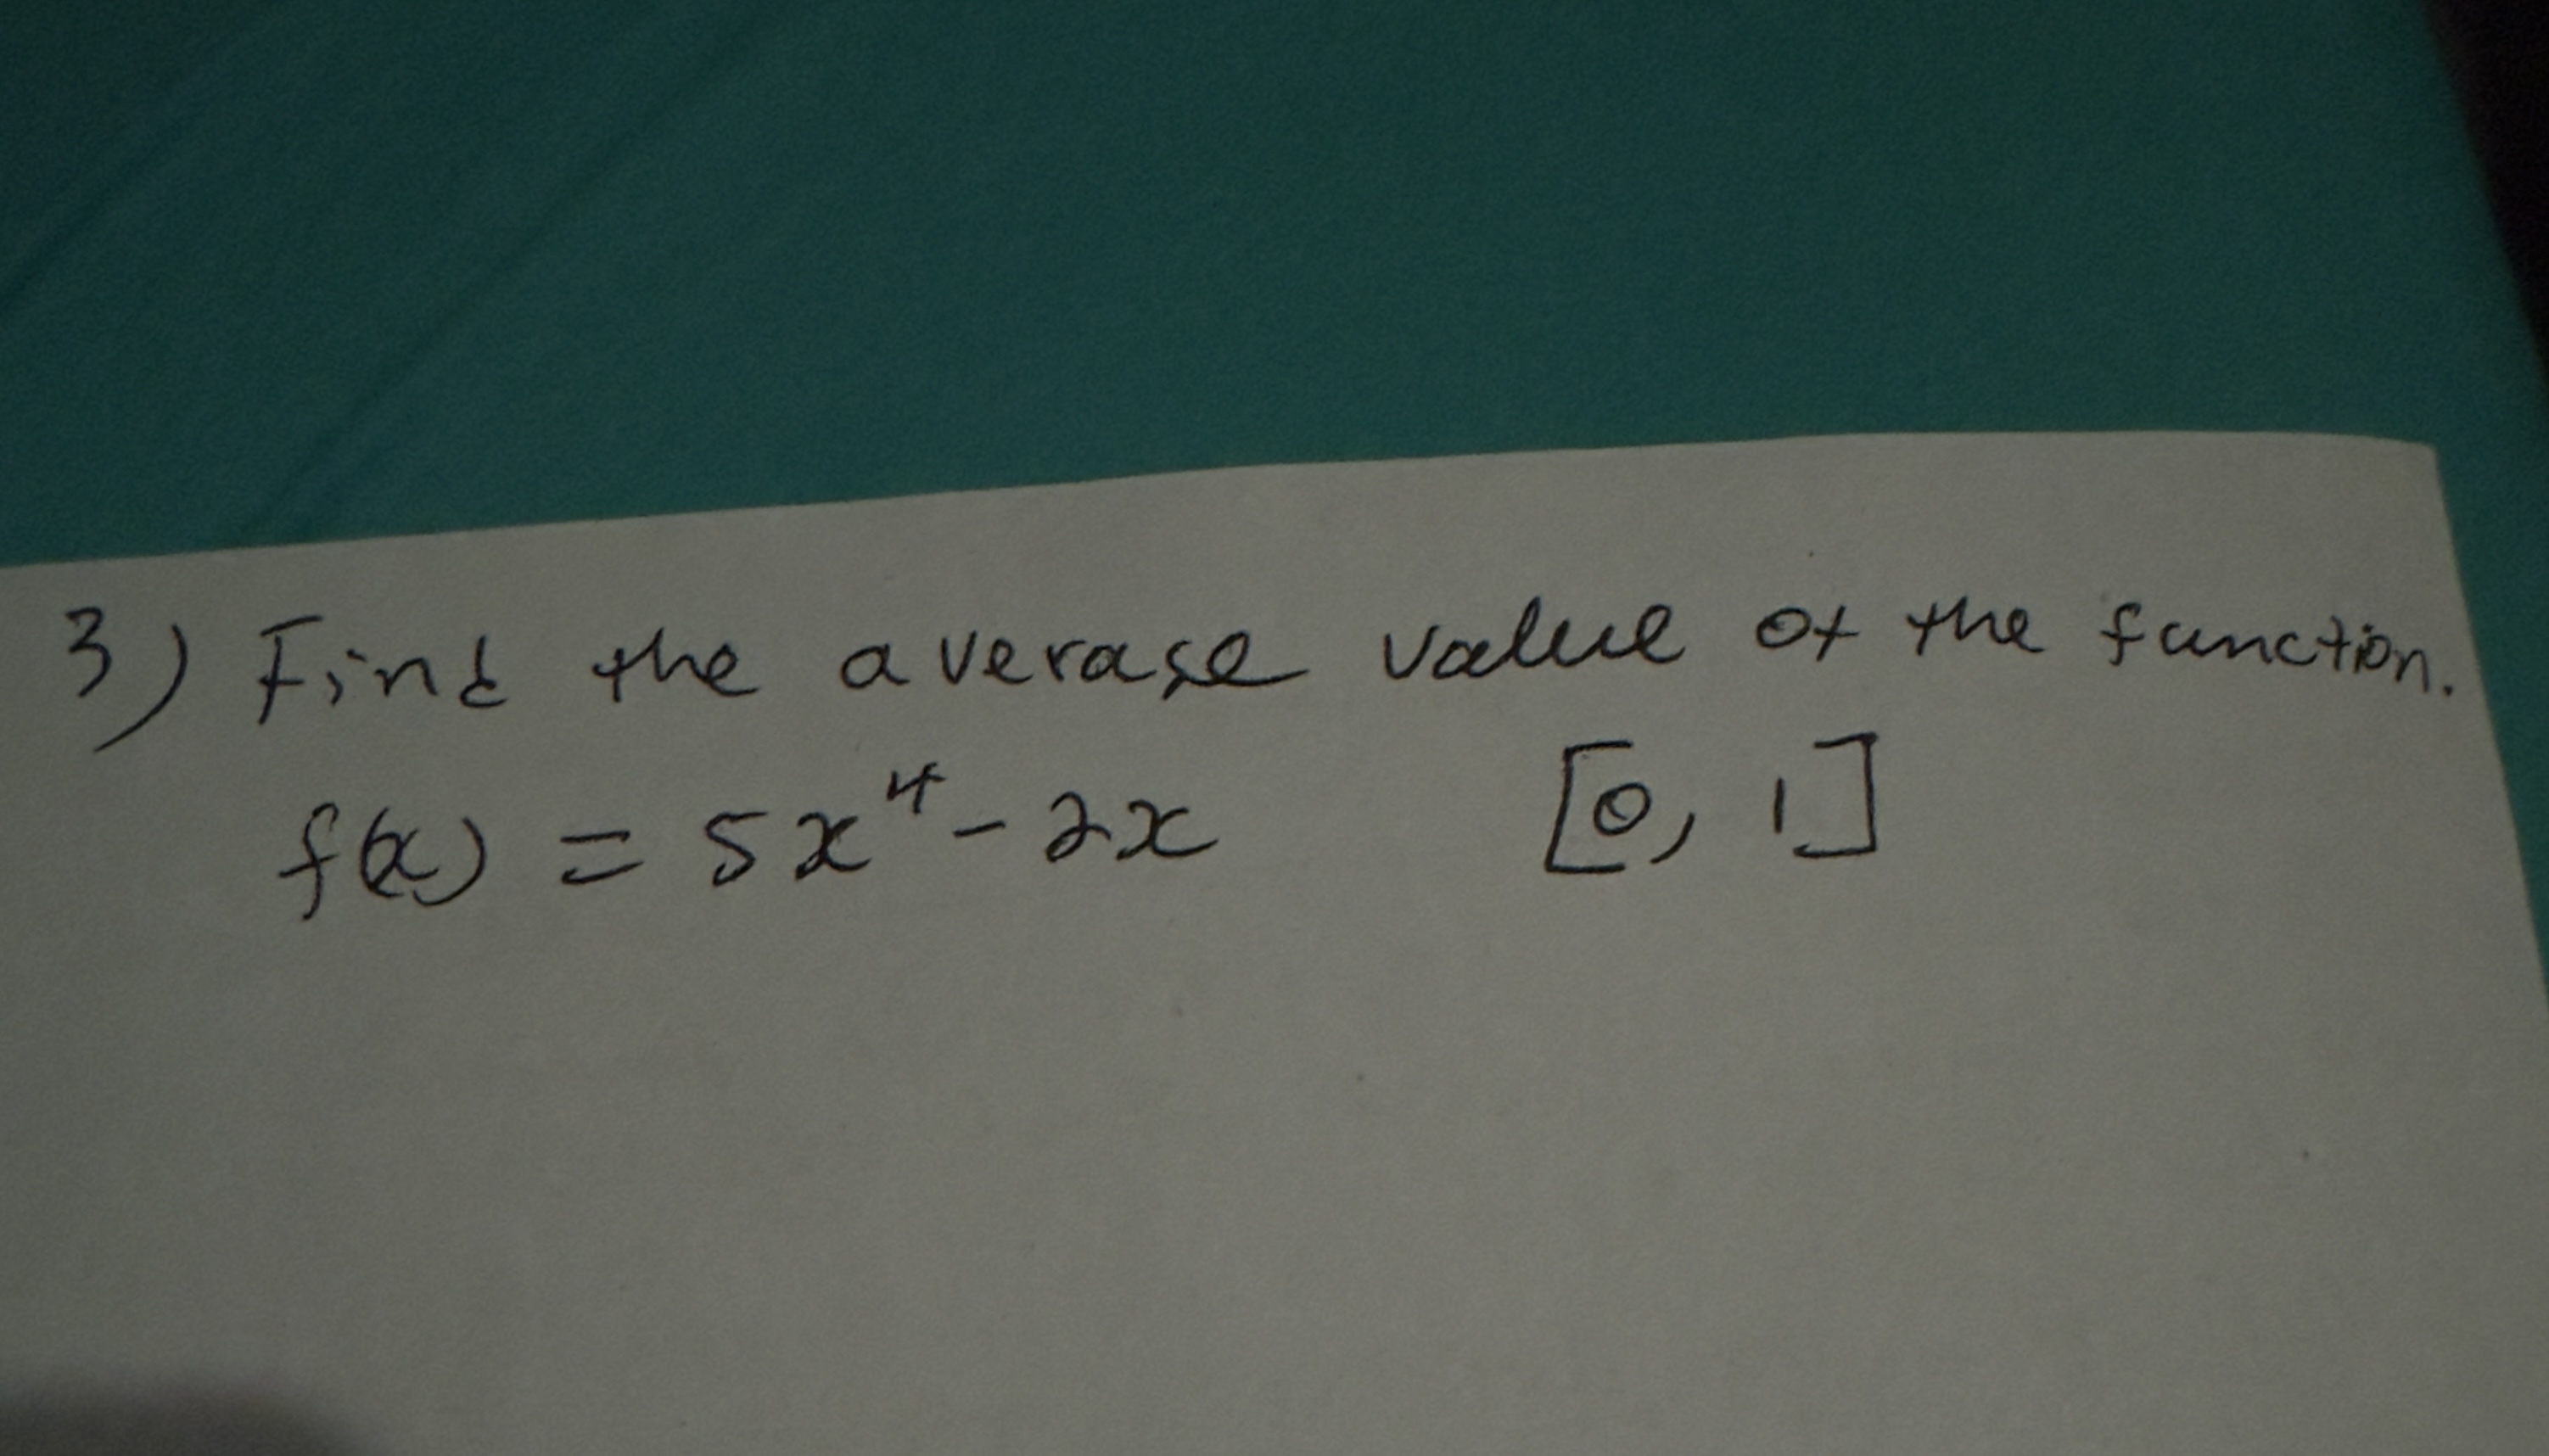 3) Find the average value of the function.
f(x) = 5x⁴ - 2x [0, 1]